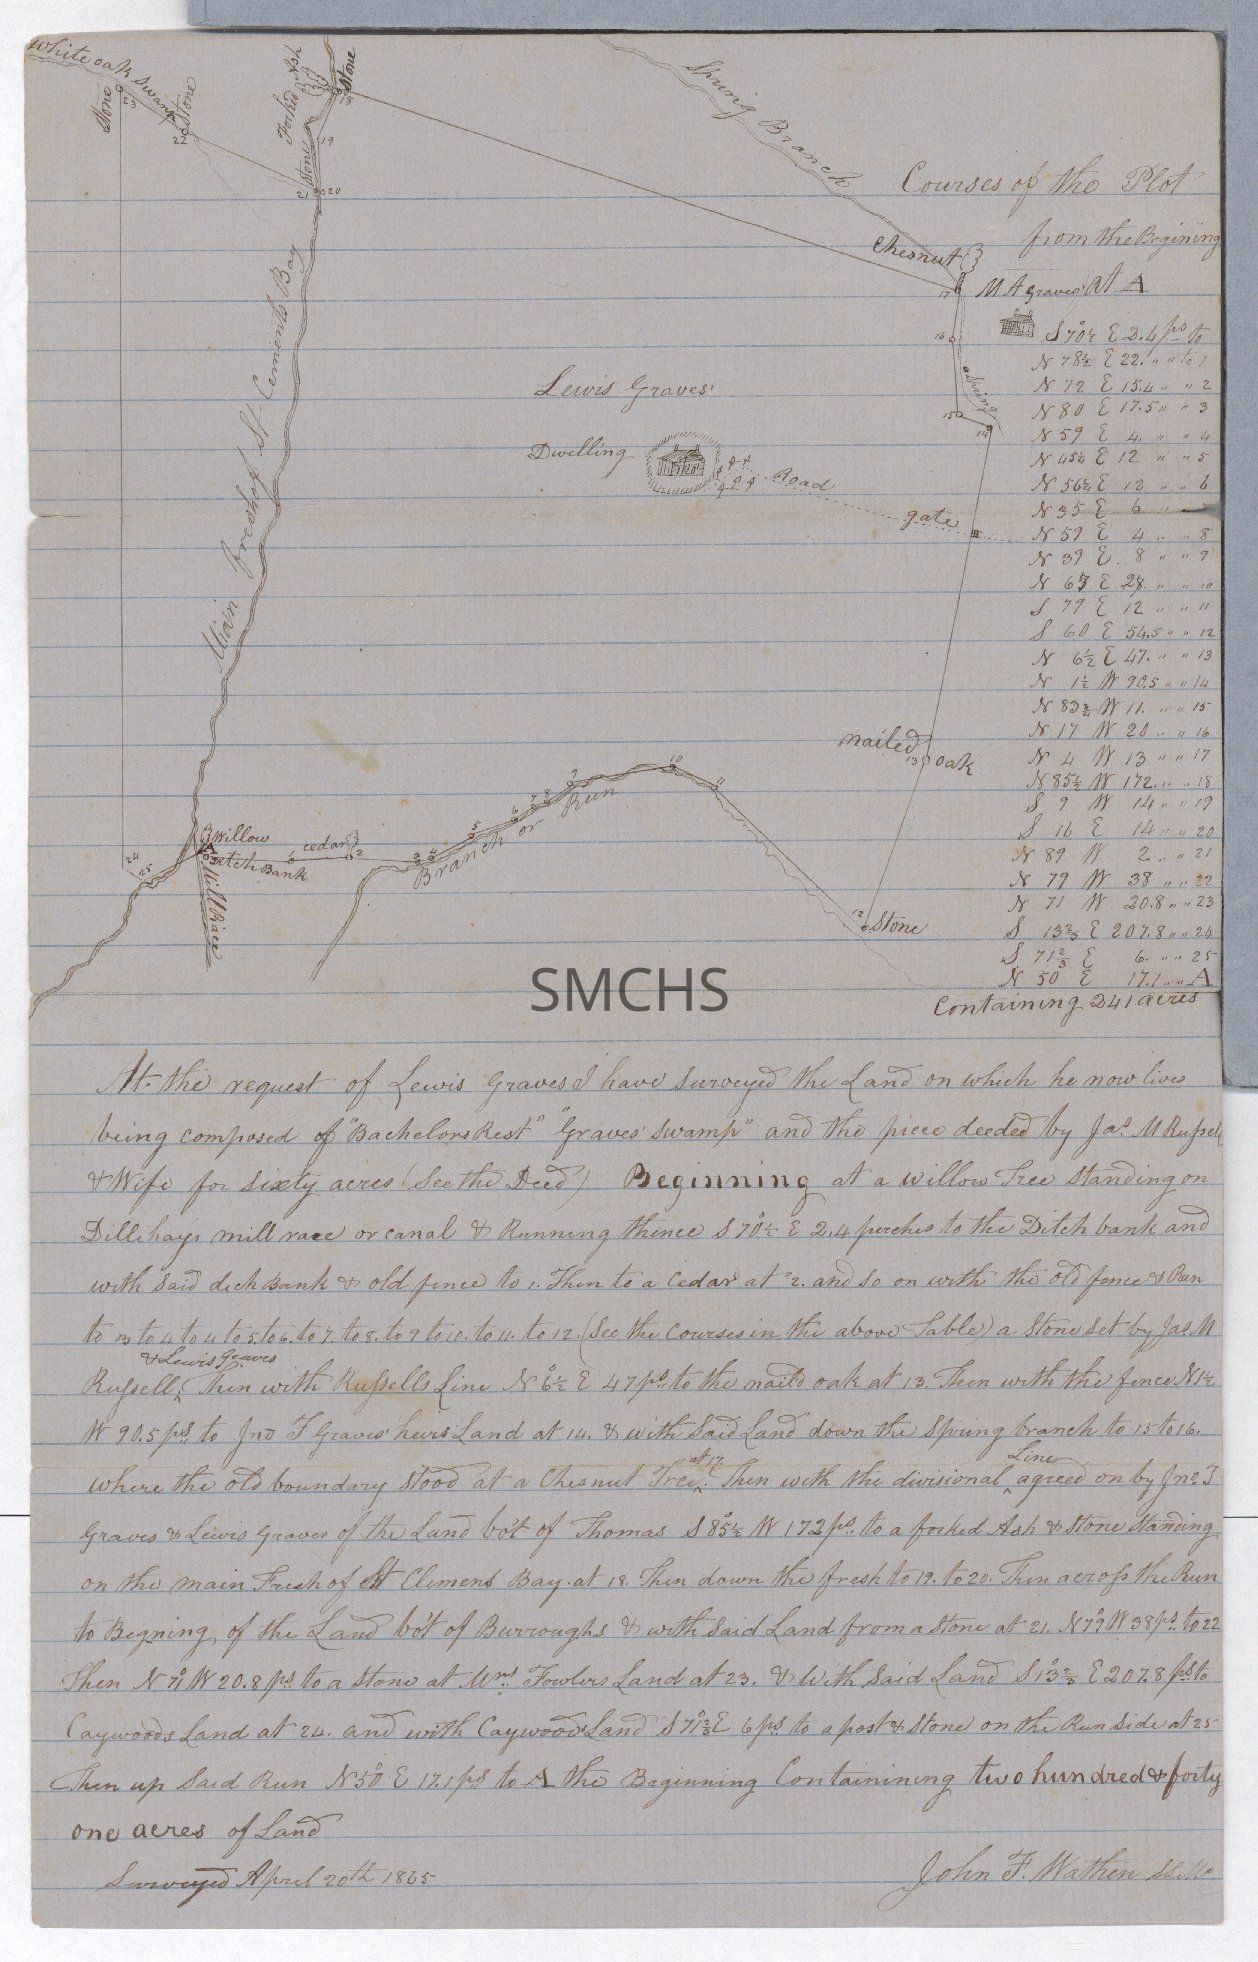 White oak Swamp
Stone
23
Stone
22
Forked Ash
Stone
18
19
Stone
21 20
Spring Branch
Courses of the Plot
from the Begining
Chesnut
17
M A Graves' at A
16
Spring
15
14
Lewis Graves'
Dwelling
Road
gate
Main fresh of St Cements Bay
S 70½ E 2.4 ps to
N 78½ E 22. " " to 1
N 72 E 15.4 " " 2
N 80 E 17.5 " " 3
N 59 E 4. " " 4
N 45¼ E 12 " " 5
N 56¼ E 12 " " 6
N 35 E 6 "
N 59 E 4 " " 8
N 39 E 8 " " 9
N 67 E 28. " " 10
S 79 E 12 " " 11
S 60 E 54.5 " " 12
N 6½ E 47. " " 13
N 1½ W 90.5 " " 14
N 83¾ W 11. " " 15
N 17 W 20 " " 16
N 4 W 13 " " 17
N 85½ W 172. " " 18
S 9 W 14 " " 19
S 16 E 14 " " 20
N 89 W 2 " " 21
N 79 W 38 " " 22
N 71 W 20.8 " " 23
S 13⅔ E 207.8 " " 24
S 71⅔ E 6. " " 25
N 50 E 17.1 " " A
Containing 241 acres
nailed
13 oak
12 Stone
11
10
9
8
7
6
5
4
3
Branch or Run
Willow
cedar
2
1
Ditch Bank
Mill Race
24
25
SMCHS
At the request of Lewis Graves I have Surveyed the Land on which he now lives
being composed of "Bachelors Rest" "Graves' Swamp" and the piece deeded by Jas. M Russell
& Wife for Sixty acres (See the Deed) Beginning at a willow Tree Standing on
Dillehays mill race or canal & Running thence S 70½° E 2.4 perches to the Ditch bank and
with Said dich Bank & old fence to 1. Then to a Cedar at 2. and so on with the old fence & Run
to 3 to 4 to 4 to 5. to 6. to 7. to 8. to 9 to 10. to 11. to 12. (See the Courses in the above Table) a Stone Set by Jas. M
& Lewis Graves
Russell; Then with Russells Line N 6½° E 47 ps. to the naild oak at 13. Then with the fence N 1½
W 90.5 ps to Jno T Graves' heirs Land at 14. & with Said Land down the Spring branch to 15 to 16.
at 17 Line
where the old boundary stood at a Chesnut Tree; Then with the divisional agreed on by Jno. T
Graves & Lewis Graves of the Land bo't of Thomas S 85½° W 172 ps. to a forked Ash & Stone Standing
on the main Fresh of St Clemens Bay. at 18. Then down the fresh to 19. to 20. Then across the Run
to Begning of the Land bo't of Burroughs & with Said Land from a Stone at 21. N 79° W 38 ps. to 22
Then N 71° W 20.8 ps. to a Stone at Mrs. Fowlers Land at 23. & With Said Land S 13⅔° E 207.8 ps to
Caywoods Land at 24. and with Caywood's Land S 71⅔° E 6 ps to a post & Stone on the Run Side at 25
Then up Said Run N 50° E 17.1 ps to A the Beginning Containining two hundred & forty
one acres of Land
Surveyed April 20th 1865
John F. Wathen